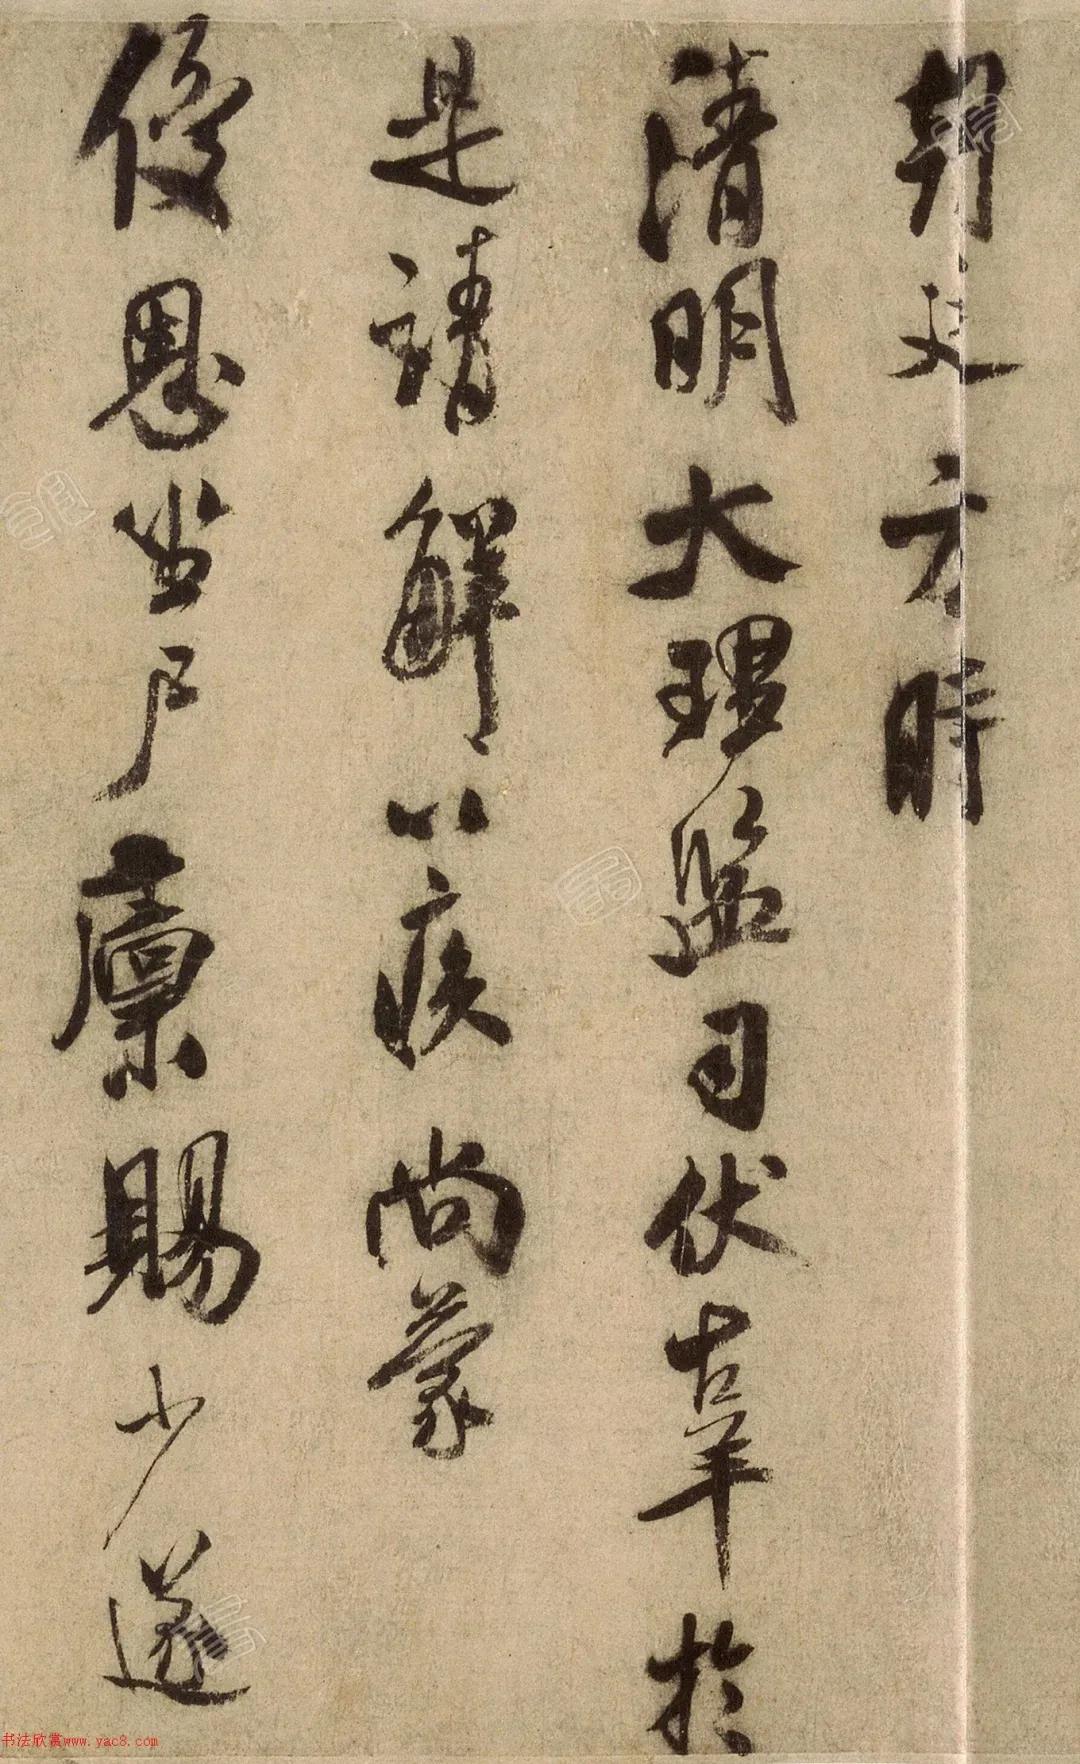 朝廷方時
清明大理監司伏辜於
是請解以疾尚蒙
優恩坐尸廩賜少遂
书法欣赏www.yac8.com